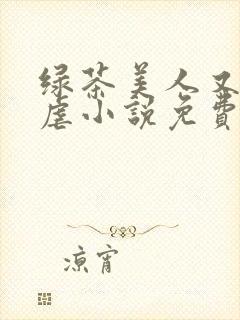 绿茶美人又
虐小說免費
涼宵